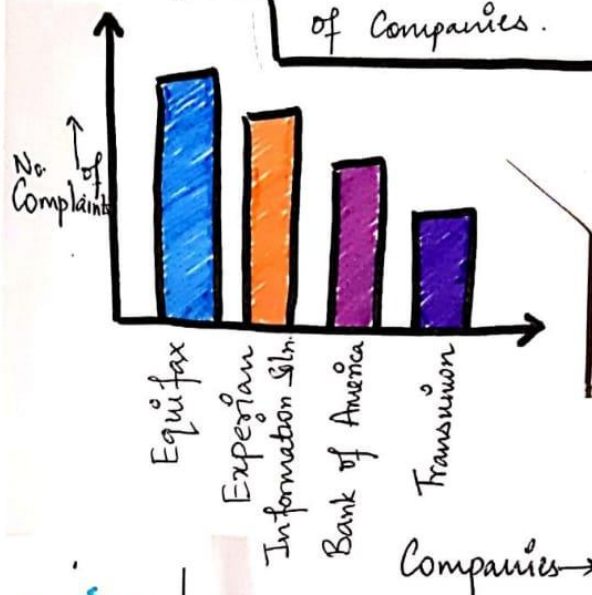 of Companies.
No. of
Complaints
Equifax
Experian
Information Soln.
Bank of America
Transunion
Companies